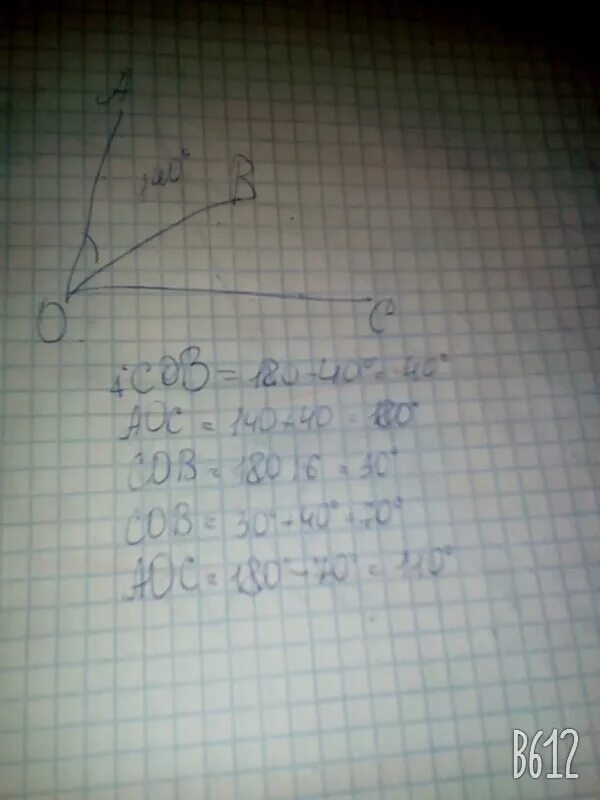 A
140°
B
O
C
∠COB = 180 - 40° = 40°
AOC = 140 - 40 = 180°
COB = 180 : 6 = 30°
COB = 30° - 40° = 70°
AOC = 180° - 70° = 110°
B612